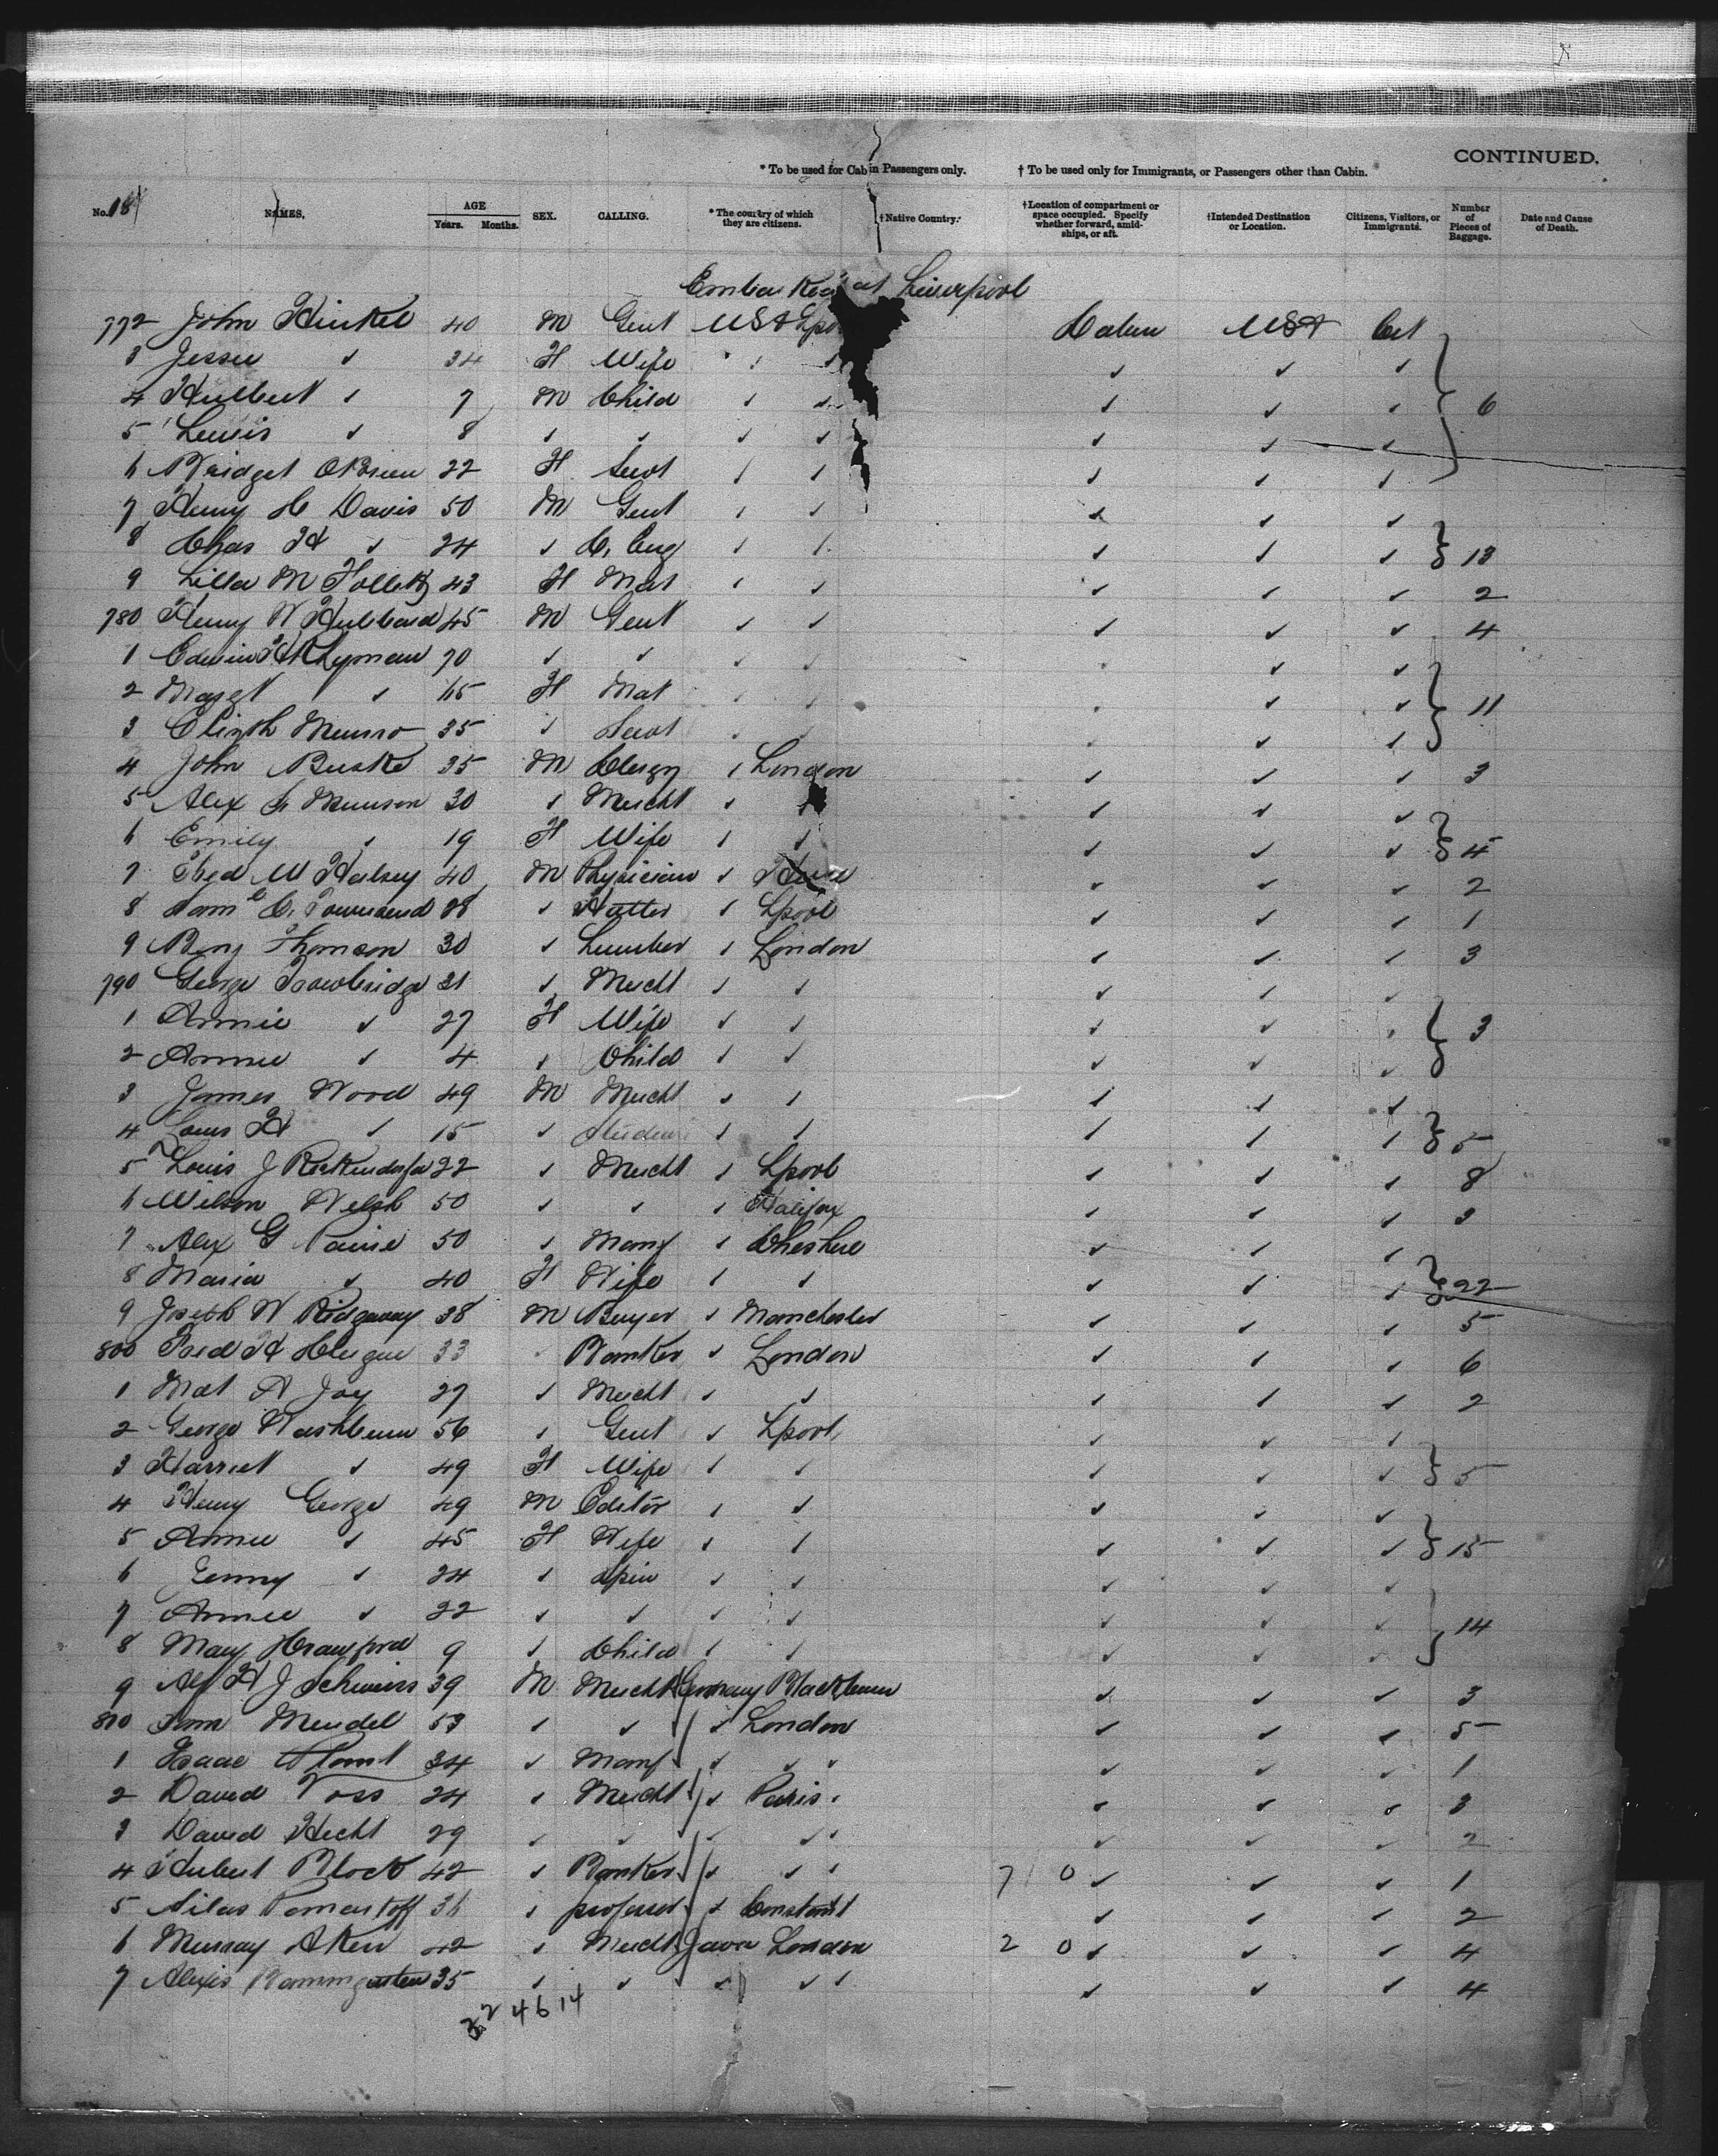 CONTINUED.
* To be used for Cabin Passengers only. † To be used only for Immigrants, or Passengers other than Cabin.
No. 18 NAMES. AGE Years. Months. SEX. CALLING. * The country of which they are citizens. † Native Country. † Location of compartment or space occupied. Specify whether forward, amidships, or aft. † Intended Destination or Location. Citizens, Visitors, or Immigrants. Number of Pieces of Baggage. Date and Cause of Death.
Embarked at Liverpool
772 John Hinkel 40 M Gent USA Lpo Cabin USA Cit
3 Jessie ✓ 34 F Wife ✓ ✓ ✓ ✓ ✓
4 ✓ 7 M Child ✓ ✓ ✓ ✓ ✓ 6
5 Lewis ✓ 8 ✓ ✓ ✓ ✓ ✓ ✓ ✓
6 Bridget OBrien 22 F Servt ✓ ✓ ✓ ✓ ✓
7 Henry C Davis 50 M Gent ✓ ✓ ✓ ✓ ✓
8 Chas H ✓ 24 ✓ C. Eng ✓ ✓ ✓ ✓ ✓ 13
9 Lilla M 43 F Mat ✓ ✓ ✓ ✓ ✓ 2
780 Henry W Hubbard 45 M Gent ✓ ✓ ✓ ✓ ✓ 4
1 Edwin Lyman 70 ✓ ✓ ✓ ✓ ✓ ✓ ✓
2 Margt ✓ 65 F Mat ✓ ✓ ✓ ✓ ✓ 11
3 Elizth Munro 35 ✓ Servt ✓ ✓ ✓ ✓ ✓
4 John Buske 35 M Clergy ✓ London ✓ ✓ ✓ 3
5 Alex Munson 30 ✓ Mercht ✓ ✓ ✓ ✓
6 Emily ✓ 19 F Wife ✓ ✓ ✓ ✓ ✓ 4
7 Fred W Halsey 40 M Physician ✓ ✓ ✓ ✓ 2
8 Saml C. Townsend 28 ✓ Hatter ✓ Lpool ✓ ✓ ✓ 1
9 Benj Thomson 30 ✓ Lumber ✓ London ✓ ✓ ✓ 3
790 George Trowbridge 31 ✓ Mercht ✓ ✓ ✓ ✓ ✓
1 Annie ✓ 27 F Wife ✓ ✓ ✓ ✓ ✓ 3
2 Annie ✓ 4 ✓ Child ✓ ✓ ✓ ✓ ✓
3 James Wood 49 M Mercht ✓ ✓ ✓ ✓ ✓
4 Louis H ✓ 15 ✓ Student ✓ ✓ ✓ ✓ ✓ 5
5 Louis J 22 ✓ Mercht ✓ Lpool ✓ ✓ ✓ 8
6 Wilson Welsh 50 ✓ ✓ ✓ Halifax ✓ ✓ ✓ 3
7 Alex G Paine 50 ✓ Manf ✓ Cheshire ✓ ✓ ✓
8 Maria ✓ 40 F Wife ✓ ✓ ✓ ✓ ✓ 22
9 Joseph W Ridgaway 38 M Buyer ✓ Manchester ✓ ✓ ✓ 5
800 Fred H Clergue 33 ✓ Banker ✓ London ✓ ✓ ✓ 6
1 Mat A Joy 27 ✓ Mercht ✓ ✓ ✓ ✓ ✓ 2
2 George Washburn 56 ✓ Gent ✓ Lpool ✓ ✓ ✓
3 Harriet ✓ 49 F Wife ✓ ✓ ✓ ✓ ✓ 5
4 Henry George 49 M Editor ✓ ✓ ✓ ✓ ✓
5 Annie ✓ 45 F Wife ✓ ✓ ✓ ✓ ✓ 15
6 Jenny ✓ 24 ✓ Spin ✓ ✓ ✓ ✓ ✓
7 Annie ✓ 22 ✓ ✓ ✓ ✓ ✓ ✓ ✓ 14
8 May Crawford 9 ✓ Child ✓ ✓ ✓ ✓ ✓
9 Alf H J 39 M Mercht Germany Blackburn ✓ ✓ ✓ 3
810 Sam Mendel 53 ✓ ✓ ✓ London ✓ ✓ ✓ 5
1 Isaac 34 ✓ Manf ✓ ✓ ✓ ✓ ✓ ✓ 1
2 David Voss 24 ✓ Mercht ✓ Paris ✓ ✓ ✓ 3
3 David Hecht 29 ✓ ✓ ✓ ✓ ✓ ✓ ✓ ✓ 2
4 Hubert Block 42 ✓ Banker ✓ ✓ ✓ 7 0 ✓ ✓ ✓ 1
5 Silas 36 ✓ professor ✓ ✓ ✓ ✓ 2
6 Murray Aken 42 ✓ Mercht Java London 2 0 ✓ ✓ ✓ 4
7 Alexis 35 ✓ ✓ ✓ ✓ ✓ ✓ ✓ ✓ 4
22 46 14